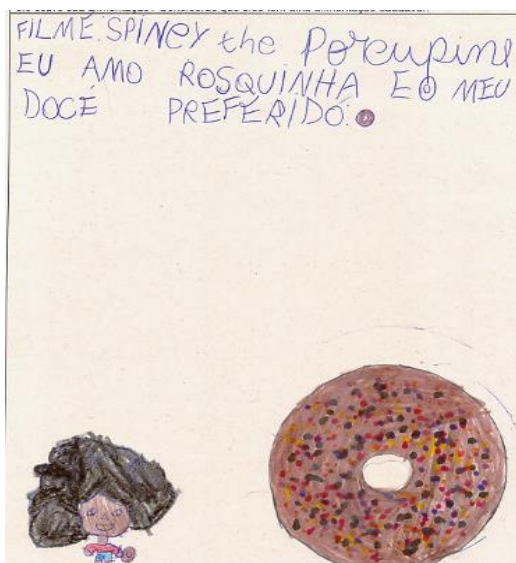 FILME: SPINEY the Porcupine
EU AMO ROSQUINHA E O MEU
DOCE PREFERIDO.